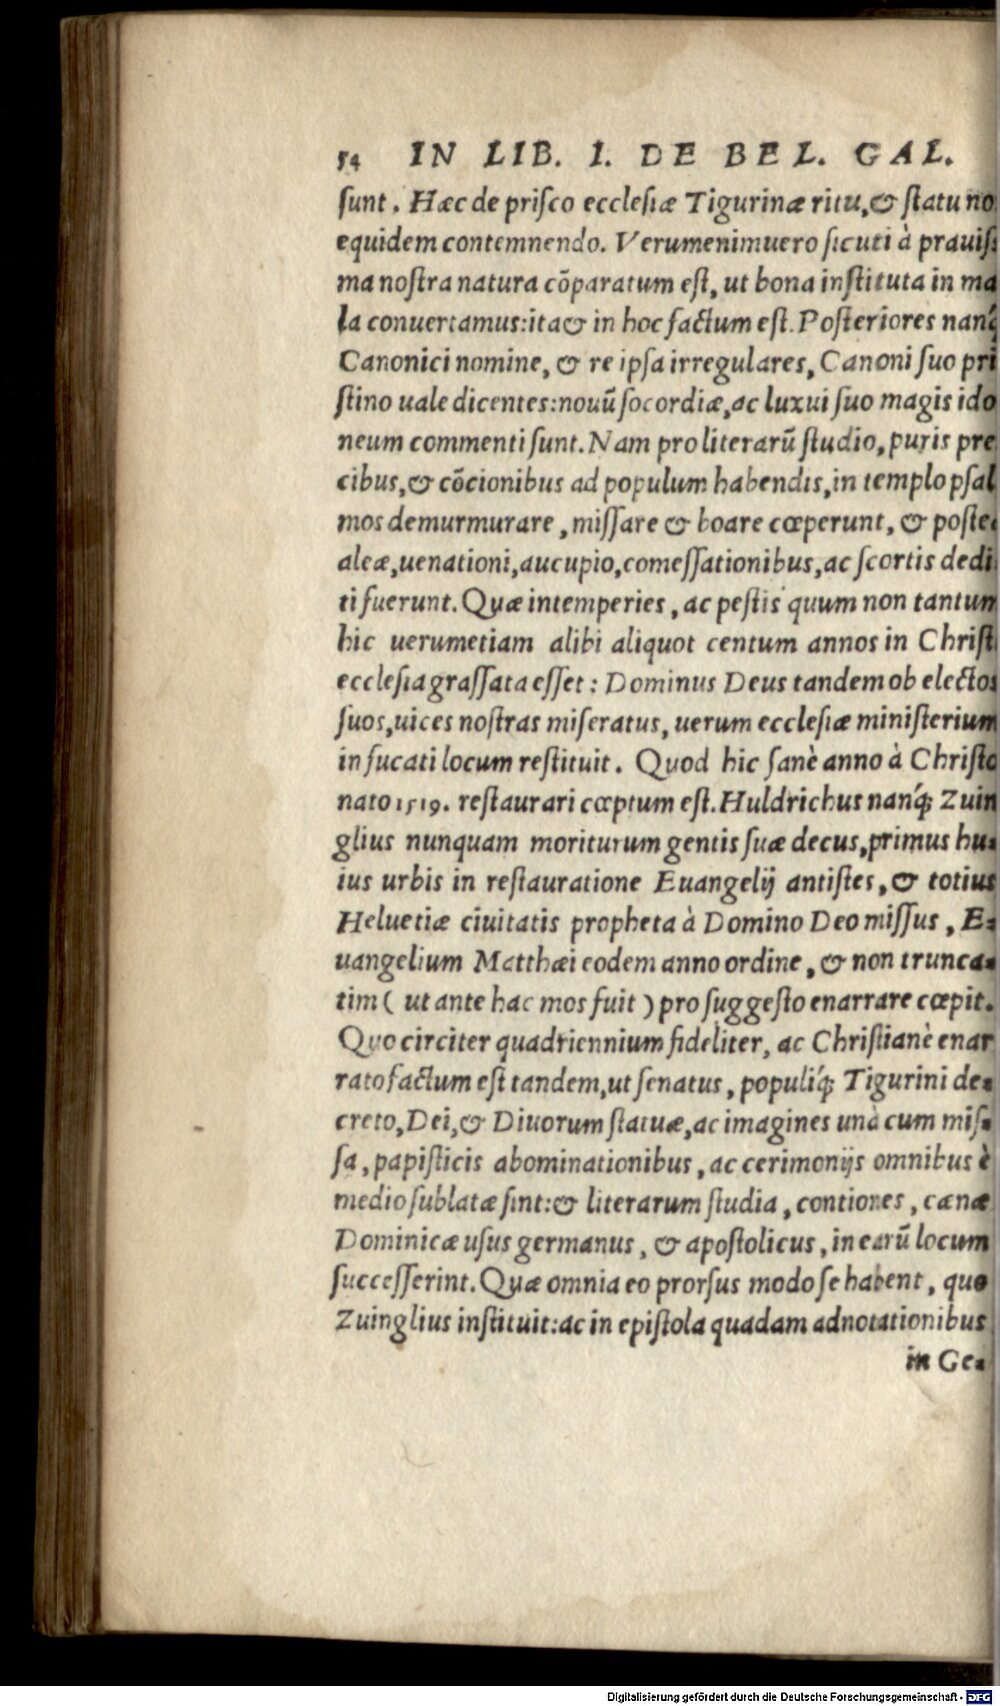 54 IN LIB. I. DE BEL. GAL.
sunt. Hæc de prisco ecclesiæ Tigurinæ ritu, & statu no
equidem contemnendo. Verumenimuero sicuti à prauis
ma nostra natura cõparatum est, ut bona instituta in ma
la conuertamus: ita & in hoc factum est. Posteriores nanq́
Canonici nomine, & re ipsa irregulares, Canoni suo pri
stino uale dicentes: nouũ socordiæ, ac luxui suo magis ido
neum commenti sunt. Nam pro literarũ studio, puris pre
cibus, & cõcionibus ad populum habendis, in templo psal
mos demurmurare, missare & boare cœperunt, & poste-
aleæ, uenationi, aucupio, comessationibus, ac scortis dedi
ti fuerunt. Quæ intemperies, ac pestis quum non tantum
hic uerumetiam alibi aliquot centum annos in Christi
ecclesia grassata esset: Dominus Deus tandem ob electos
suos, uices nostras miseratus, uerum ecclesiæ ministerium
in fucati locum restituit. Quod hic sanè anno à Christo
nato 1519. restaurari cœptum est. Huldrichus nanq́; Zuin
glius nunquam moriturum gentis suæ decus, primus hu-
ius urbis in restauratione Euangelij antistes, & totius
Heluetiæ ciuitatis propheta à Domino Deo missus, E-
uangelium Matthæi eodem anno ordine, & non trunca-
tim ( ut ante hac mos fuit ) pro suggesto enarrare cœpit.
Quo circiter quadriennium fideliter, ac Christianè enar
rato factum est tandem, ut senatus, populiq́; Tigurini de-
creto, Dei, & Diuorum statuæ, ac imagines unà cum mis-
sa, papisticis abominationibus, ac cerimonijs omnibus è
medio sublatæ sint: & literarum studia, contiones, cænæ
Dominicæ usus germanus, & apostolicus, in earũ locum
successerint. Quæ omnia eo prorsus modo se habent, quo
Zuinglius instituit: ac in epistola quadam adnotationibus
in Ge-
Digitalisierung gefördert durch die Deutsche Forschungsgemeinschaft - DFG